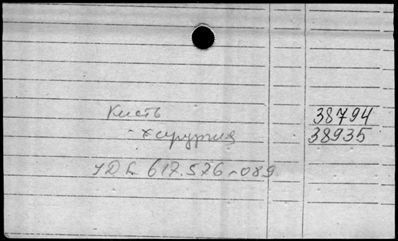 Кисть 38794
- хирургия 38935
УДК 617.576-089